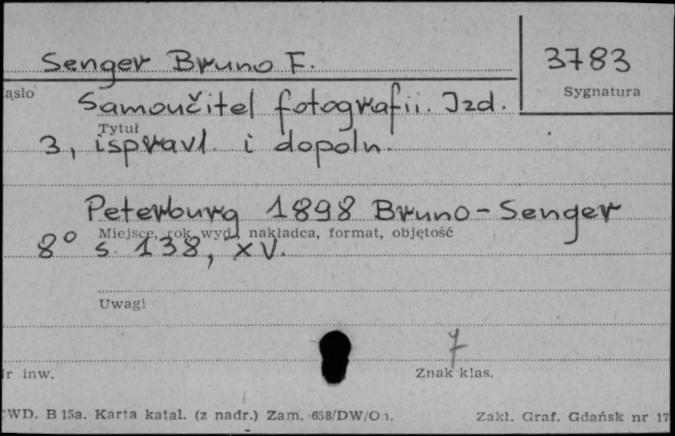 Senger Bruno F.
3783
Sygnatura
asło
Samoučitel fotografii. Izd.
Tytuł
3, ispravl. i dopoln.
Peterburg 1898 Bruno-Senger
Miejsce, rok wyd., nakładca, format, objętość
8° s. 138, XV.
Uwagi
7
r inw.
Znak klas.
CWD. B 15a. Karta katal. (z nadr.) Zam. 658/DW/O
Zakł. Graf. Gdańsk nr 17